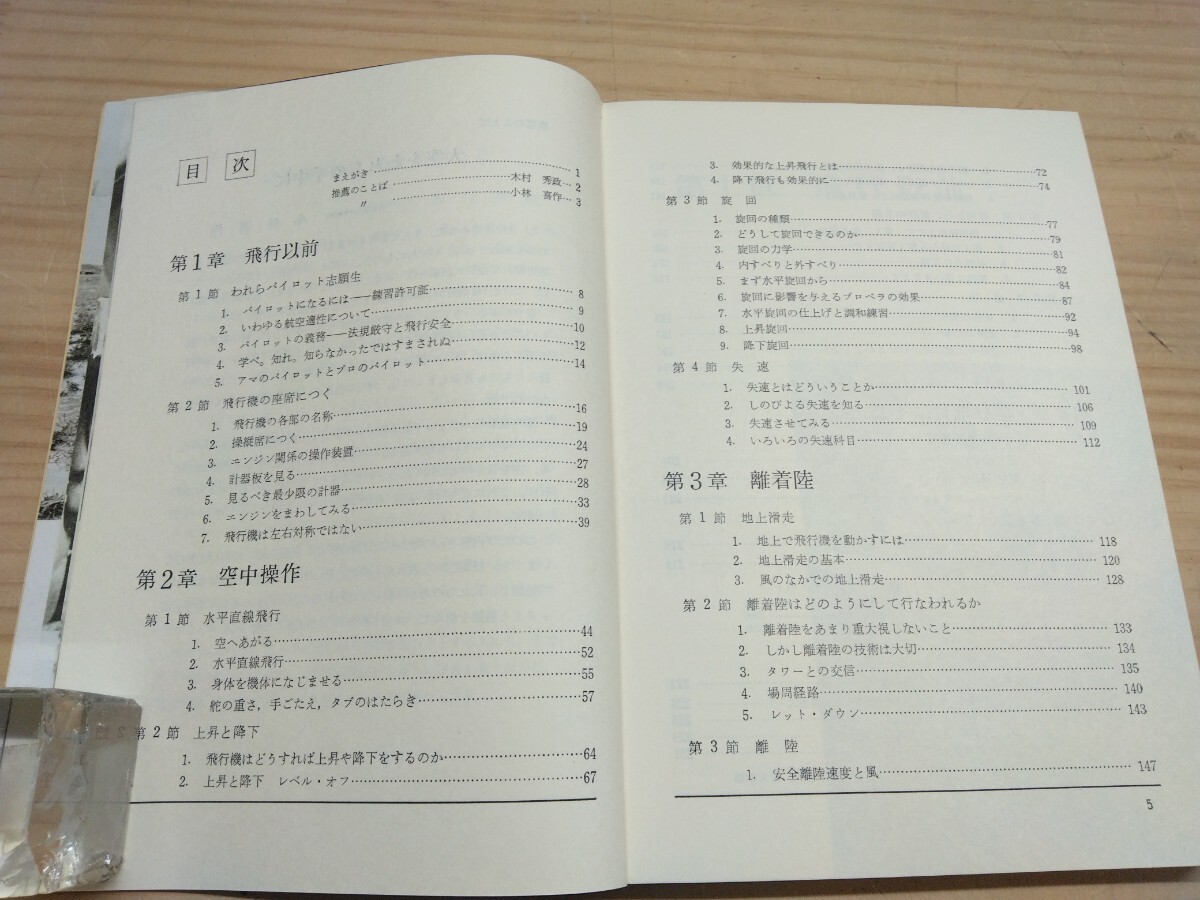 目次
まえがき……………1
推薦のことば……………木村 秀政…2
〃 ……………小林 喜作…3
第1章 飛行以前
第1節 われらパイロット志願生
1. パイロットになるには——練習許可証……………8
2. いわゆる航空適性について……………9
3. パイロットの義務——法規厳守と飛行安全……………10
4. 学べ。知れ。知らなかったではすまされぬ……………12
5. アマのパイロットとプロのパイロット……………14
第2節 飛行機の座席につく
1. 飛行機の各部の名称……………16
2. 操縦席につく……………19
3. エンジン関係の操作装置……………24
4. 計器板を見る……………27
5. 見るべき最少限の計器……………28
6. エンジンをまわしてみる……………33
7. 飛行機は左右対称ではない……………39
第2章 空中操作
第1節 水平直線飛行
1. 空へあがる……………44
2. 水平直線飛行……………52
3. 身体を機体になじませる……………55
4. 舵の重さ，手ごたえ，タブのはたらき……………57
第2節 上昇と降下
1. 飛行機はどうすれば上昇や降下をするのか……………64
2. 上昇と降下 レベル・オフ……………67
3. 効果的な上昇飛行とは……………72
4. 降下飛行も効果的に……………74
第3節 旋回
1. 旋回の種類……………77
2. どうして旋回できるのか……………79
3. 旋回の力学……………81
4. 内すべりと外すべり……………82
5. まず水平旋回から……………84
6. 旋回に影響を与えるプロペラの効果……………87
7. 水平旋回の仕上げと調和練習……………92
8. 上昇旋回……………94
9. 降下旋回……………98
第4節 失速
1. 失速とはどういうことか……………101
2. しのびよる失速を知る……………106
3. 失速させてみる……………109
4. いろいろの失速科目……………112
第3章 離着陸
第1節 地上滑走
1. 地上で飛行機を動かすには……………118
2. 地上滑走の基本……………120
3. 風のなかでの地上滑走……………128
第2節 離着陸はどのようにして行なわれるか
1. 離着陸をあまり重大視しないこと……………133
2. しかし離着陸の技術は大切……………134
3. タワーとの交信……………135
4. 場周経路……………140
5. レット・ダウン……………143
第3節 離陸
1. 安全離陸速度と風……………147
5